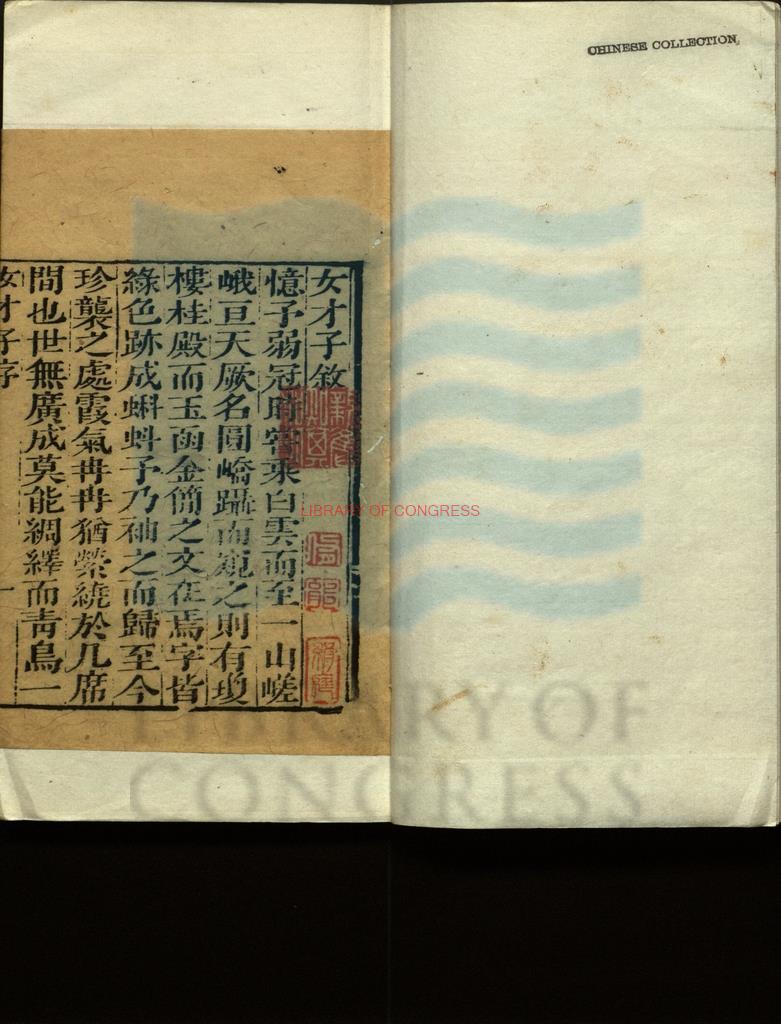 CHINESE COLLECTION
女才子敘
憶予弱冠時嘗乘白雲而至一山嵯
峨亘天厥名圓嶠躡而窺之則有瓊
樓桂殿而玉函金簡之文在焉字皆
綠色跡成蝌蚪予乃袖之而歸至今
珍襲之處霞氣冉冉猶縈繞於几席
間也世無廣成莫能綢繹而靑鳥一
女才子序
一
LIBRARY OF CONGRESS
LIBRARY OF
CONGRESS